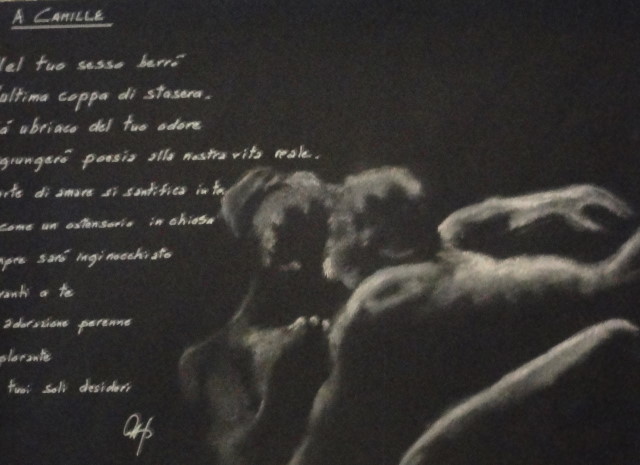 A CAMILLE
del tuo sesso berrò
ultima coppa di stasera.
ubriaco del tuo odore
giungerò poesia alla nostra vita reale.
arte di amare si santifica in te
come un ostensorio in chiesa
mpre sarò inginocchiato
anti a te
adorazione perenne
plorante
tuoi soli desideri